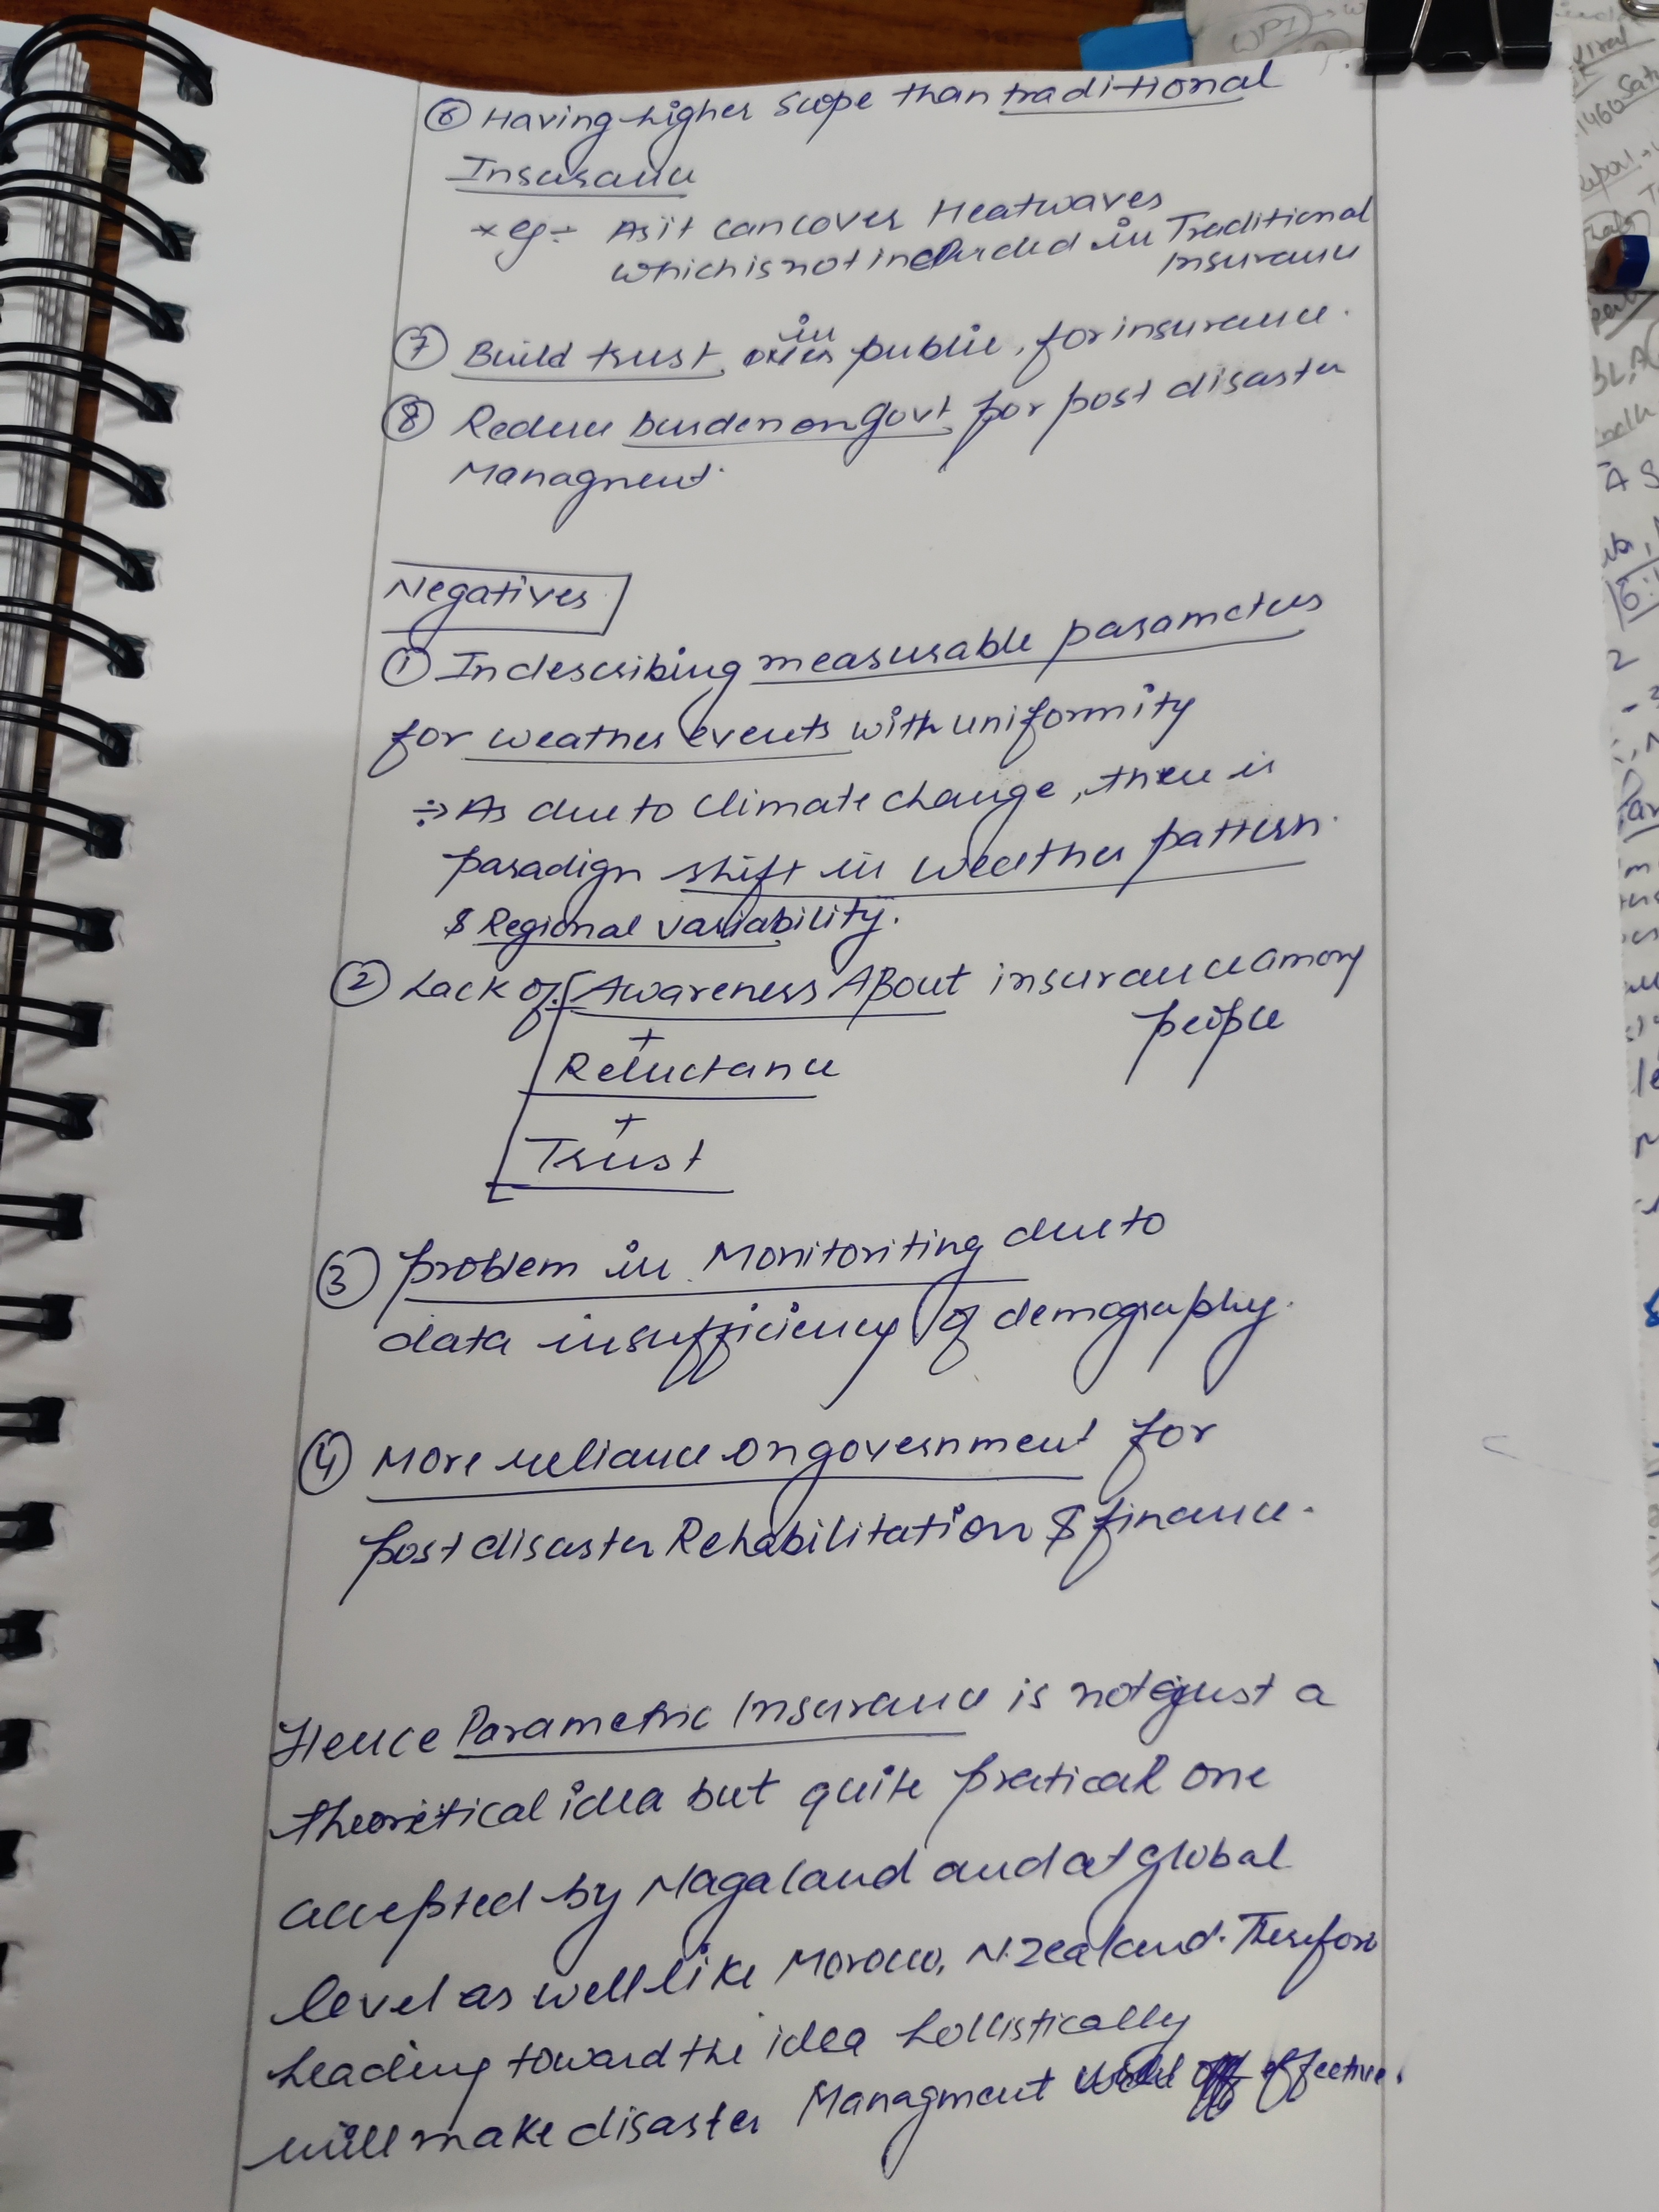 ⑥ Having higher scope than traditional
Insurance
* eg:- As it can cover Heatwaves
which is not included in Traditional
Insurance
⑦ Build trust in public, for insurance.
⑧ Reduce burden on govt for post disaster
Managment.
Negatives
① In describing measurable parameters
for weather events with uniformity
÷> As due to Climate change, there is
paradign shift in weather pattern.
& Regional variability.
② Lack of Awareness ABout insurance among
people
+
Reluctance
+
Trust
③ problem in Monitoriting due to
data insufficiency of demography.
④ More reliance on government for
post disaster Rehabilitation & finance.
Hence Parametric Insurance is not just a
theoretical idea but quite pratical one
accepted by Nagaland and at global
level as well like Morocco, N.Zealand. Therefore
heading toward the idea hollistically
will make disaster Managment effective.
WPI